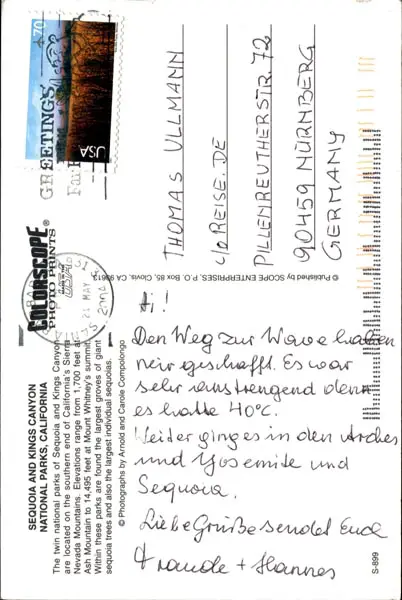 SEQUOIA AND KINGS CANYON
NATIONAL PARKS, CALIFORNIA
The twin national parks of Sequoia and Kings Canyon
are located on the southern end of California's Sierra
Nevada Mountains. Elevations range from 1,700 feet at
Ash Mountain to 14,495 feet at Mount Whitney's summit.
Within these parks are found the largest groves of giant
sequoia trees and also the largest individual sequoias.
© Photographs by Arnold and Carole Compolongo
Hi!
Den Weg zur Wave haben
wir geschafft. Es war
sehr anstrengend denn
es hatte 40°C.
Weiter ging es in den Arches
und Yosemite und
Sequoia.
Liebe Grüße sendet Euch
+ Hannes
S-899
COLORSCOPE®
PHOTO PRINTS
© Published by SCOPE ENTERPRISES, P.O. Box 85, Clovis, CA 93613
21 MAY
2004
GREETINGS
USA
70
THOMAS ULLMANN
c/o REISE.DE
PILLENREUTHERSTR. 72
90459 NÜRNBERG
GERMANY